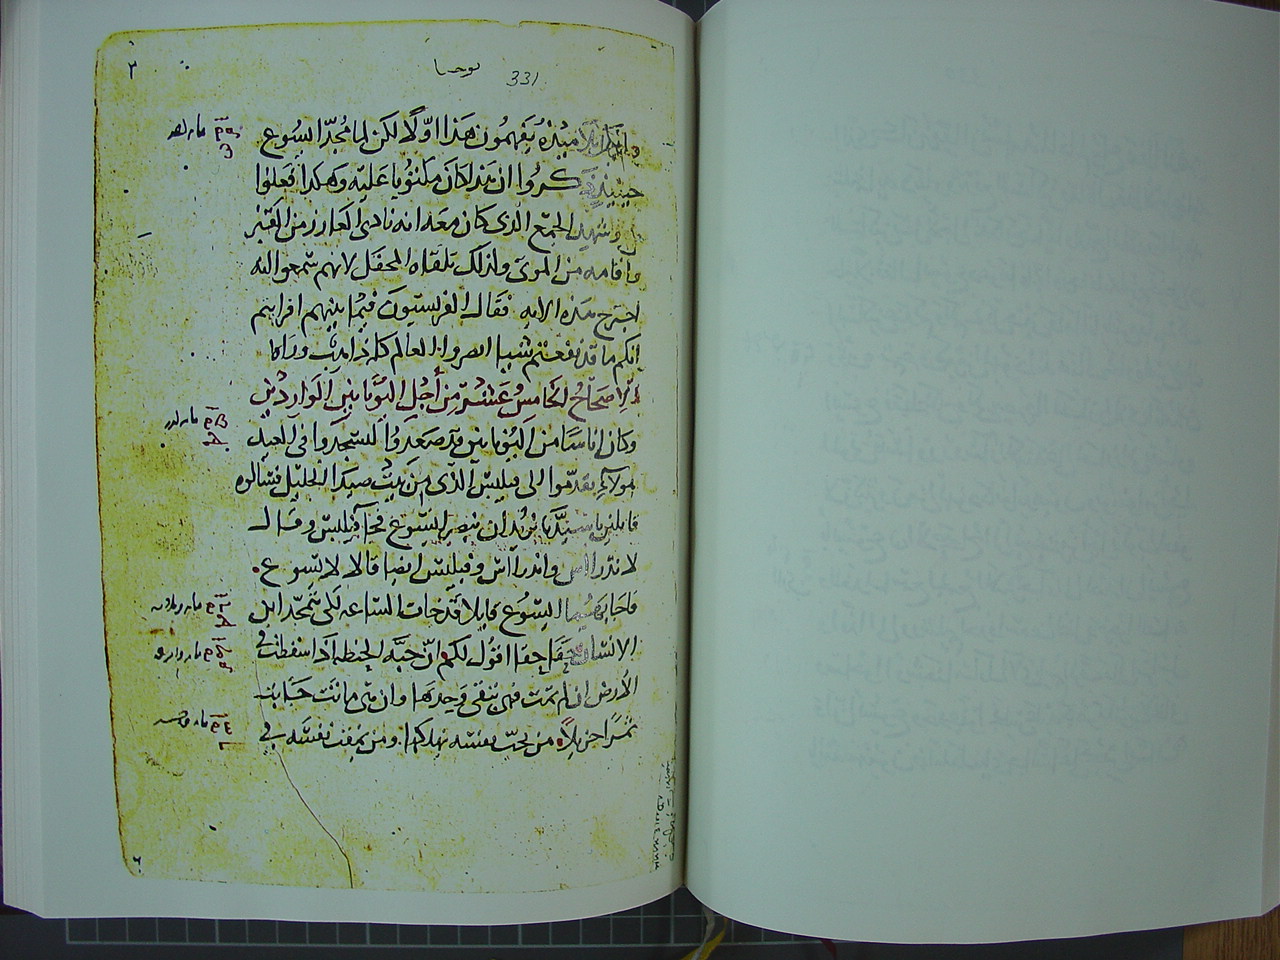 ٣
يوحنا 331
تلاميذه يفهمون هذا اولًا لكن لما مُجّد ايسُوع
حينيذ كروا ان هذا كان مكتوبا عليه وهكذا فعلوا
وشهد الجمع الذى كان معه انه نادى العازر من القبر
واقامه من الموتى ولذلك تلقاه المحفل لانهم سمعوا انه
اجترح هذه الايه فقال الفريسيون فيما بينهم افرايتم
انكم ما قد نفعتم شيا انصروا العالم كله ذاهب وراه
الاصحاح الخامس عشر من أجل اليونانيين الواردين
وكان اناسًا من اليونانيين قد صعدوا ليسجدوا فى العيد
هولاء تقدموا الى فيلبس الذى من بيت صيدا الجليل فسالوه
قايلين يا سيد نريد ان نبصر ايسوع فجا فيلبس وقال
لاندراس واندراس وفيلبس ايضا قالا لايسوع
فاجابهما ايسوع قايلا قد جات الساعه لكى يتمجد ابن
الانسان حقا حقا اقول لكم ان حبه الحنطه اذا سقطت فى
الأرض ان لم تمت فهى تبقى وحدها وان هى ماتت جابت
ثمرًا جزيلًا من يحب نفسه يهلكها ومن يمقت نفسه فى